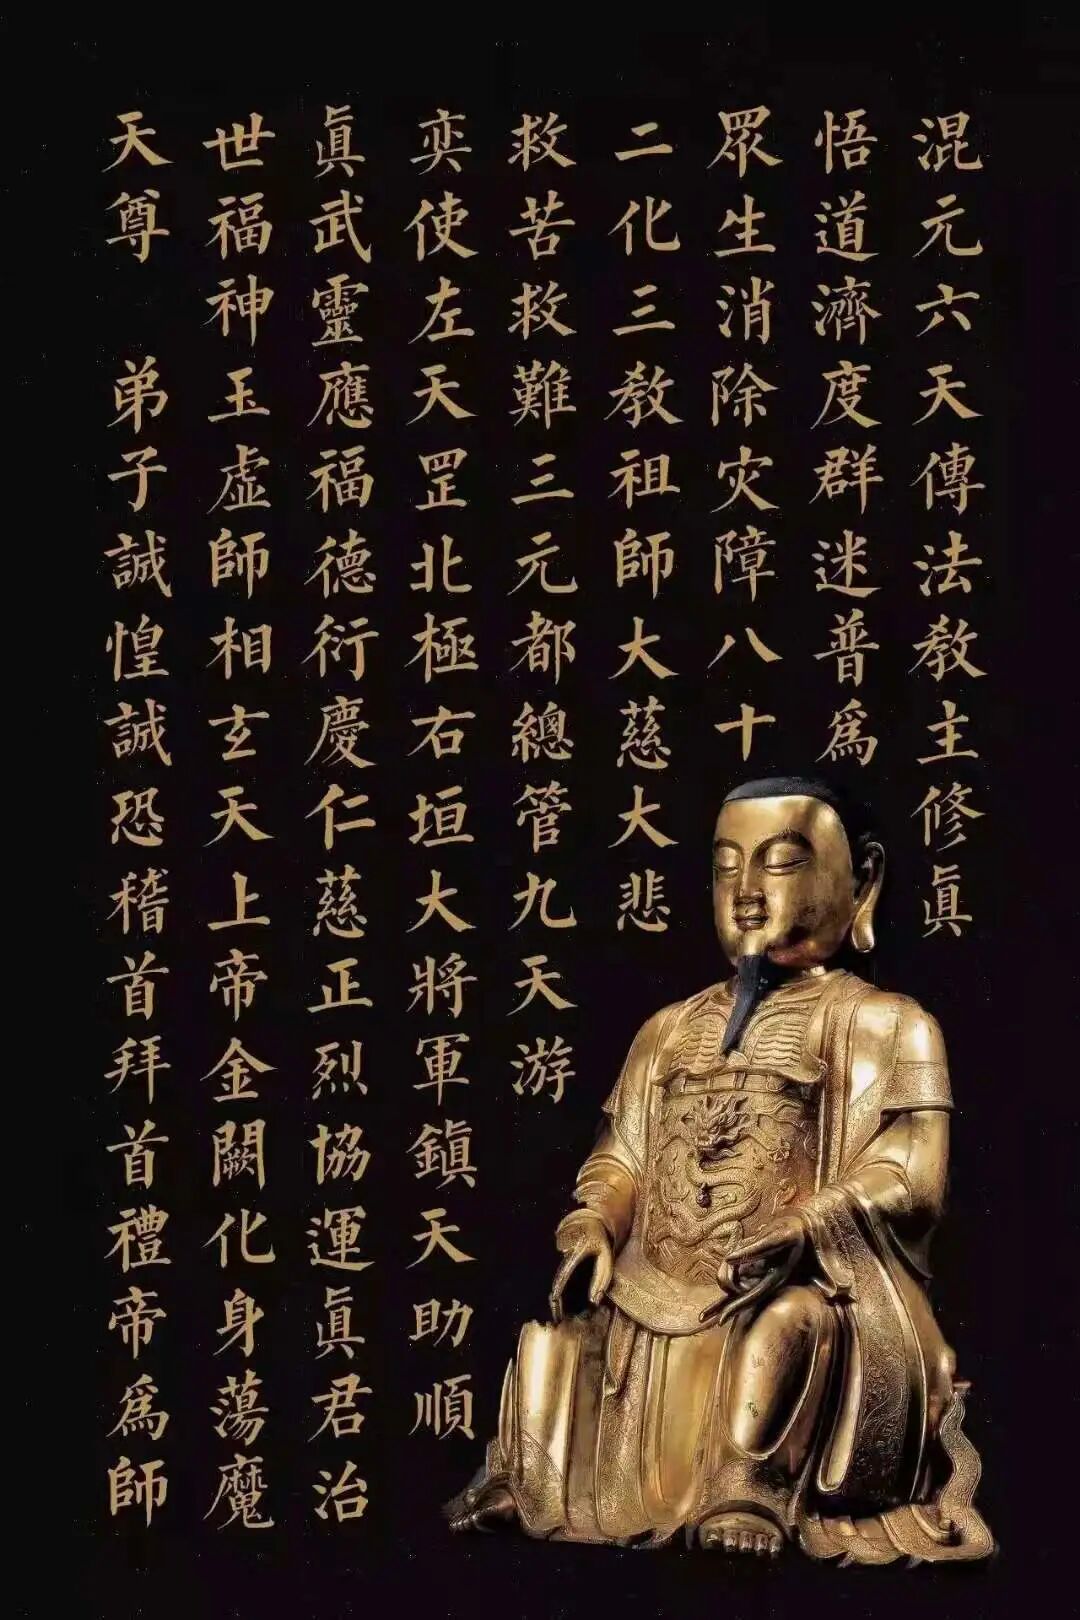 混元六天傳法教主修眞
悟道濟度群迷普爲
眾生消除灾障八十
二化三教祖師大慈大悲
救苦救難三元都總管九天游
奕使左天罡北極右垣大將軍鎮天助順
眞武靈應福德衍慶仁慈正烈協運眞君治
世福神玉虛師相玄天上帝金闕化身蕩魔
天尊 弟子誠惶誠恐稽首拜首禮帝爲師